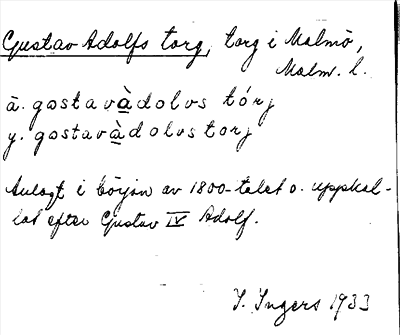 Gustav Adolfs torg, torg i Malmö,
Malm. l.
ä. gostavàdolvs tórj
y. gostavàdolvstorj
Anlagt i början av 1800-talet o. uppkal-
lat efter Gustav IV Adolf.
I. Ingers 1933